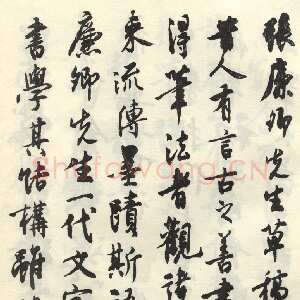 張廉卿先生草稿
昔人有言古之善書
得筆法者觀諸
来流傳墨蹟斯語
廉卿先生一代文宗
書學其結構雖